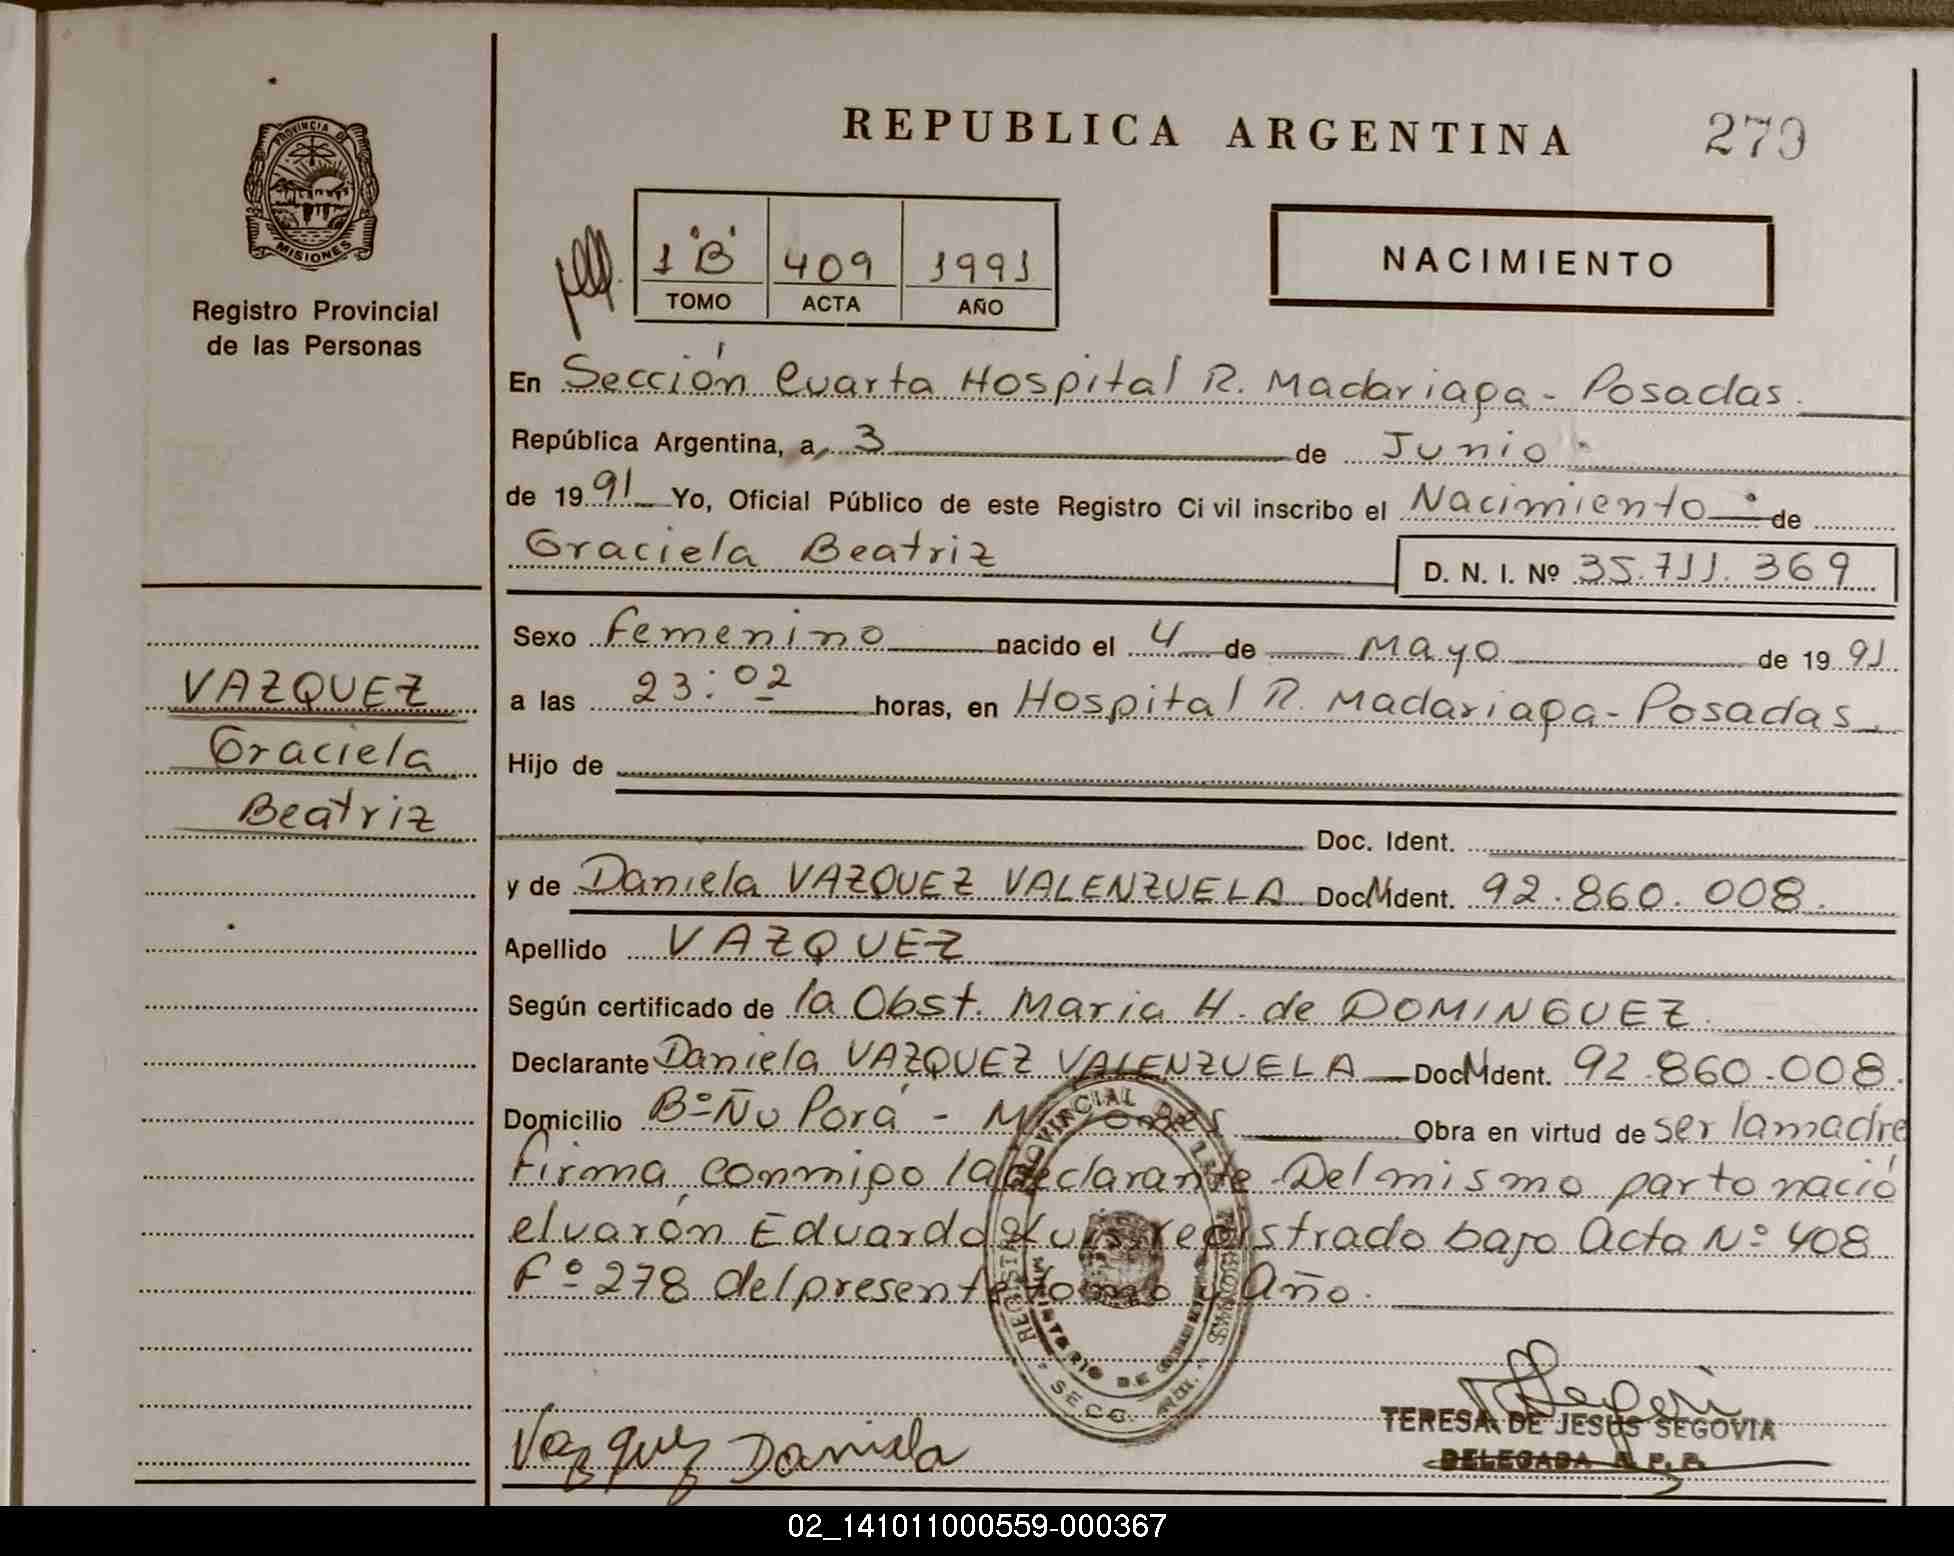 REPUBLICA ARGENTINA
279
PROVINCIA DE
MISIONES
Registro Provincial
de las Personas
1 "B" 409 1991
TOMO ACTA AÑO
NACIMIENTO
En Sección Cuarta Hospital R. Madariaga - Posadas.
República Argentina, a 3 de Junio
de 1991 Yo, Oficial Público de este Registro Civil inscribo el Nacimiento de
Graciela Beatriz
D. N. I. Nº 35.711.369
Sexo Femenino nacido el 4 de Mayo de 1991
a las 23:02 horas, en Hospital R. Madariaga - Posadas.
Hijo de
Doc. Ident.
y de Daniela VAZQUEZ VALENZUELA Doc. Ident. 92.860.008.
Apellido VAZQUEZ
Según certificado de la Obst. Maria H. de DOMINGUEZ.
Declarante Daniela VAZQUEZ VALENZUELA Doc. Ident. 92.860.008.
Domicilio Bº Ñu Porá - Obra en virtud de ser la madre
firma conmigo la declarante. Del mismo parto nació
el varón Eduardo Luis registrado bajo Acta Nº 408
Fº 278 del presente tomo y Año.
VAZQUEZ
Graciela
Beatriz
Vazquez Daniela
TERESA DE JESUS SEGOVIA
DELEGADA R. P. P.
02_141011000559-000367